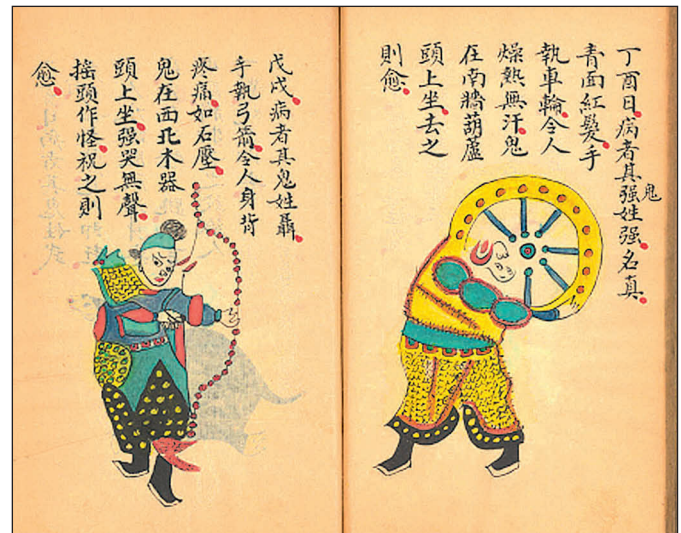 丁酉日病者其鬼强姓强名真
青面紅髮手
執車輪令人
燥熱無汗鬼
在南牆葫蘆
頭上坐去之
則愈
戊戌病者其鬼姓聶
手執弓箭令人身背
疼痛如石壓
鬼在西北木器
頭上坐强哭無聲
摇頭作怪祝之則
愈